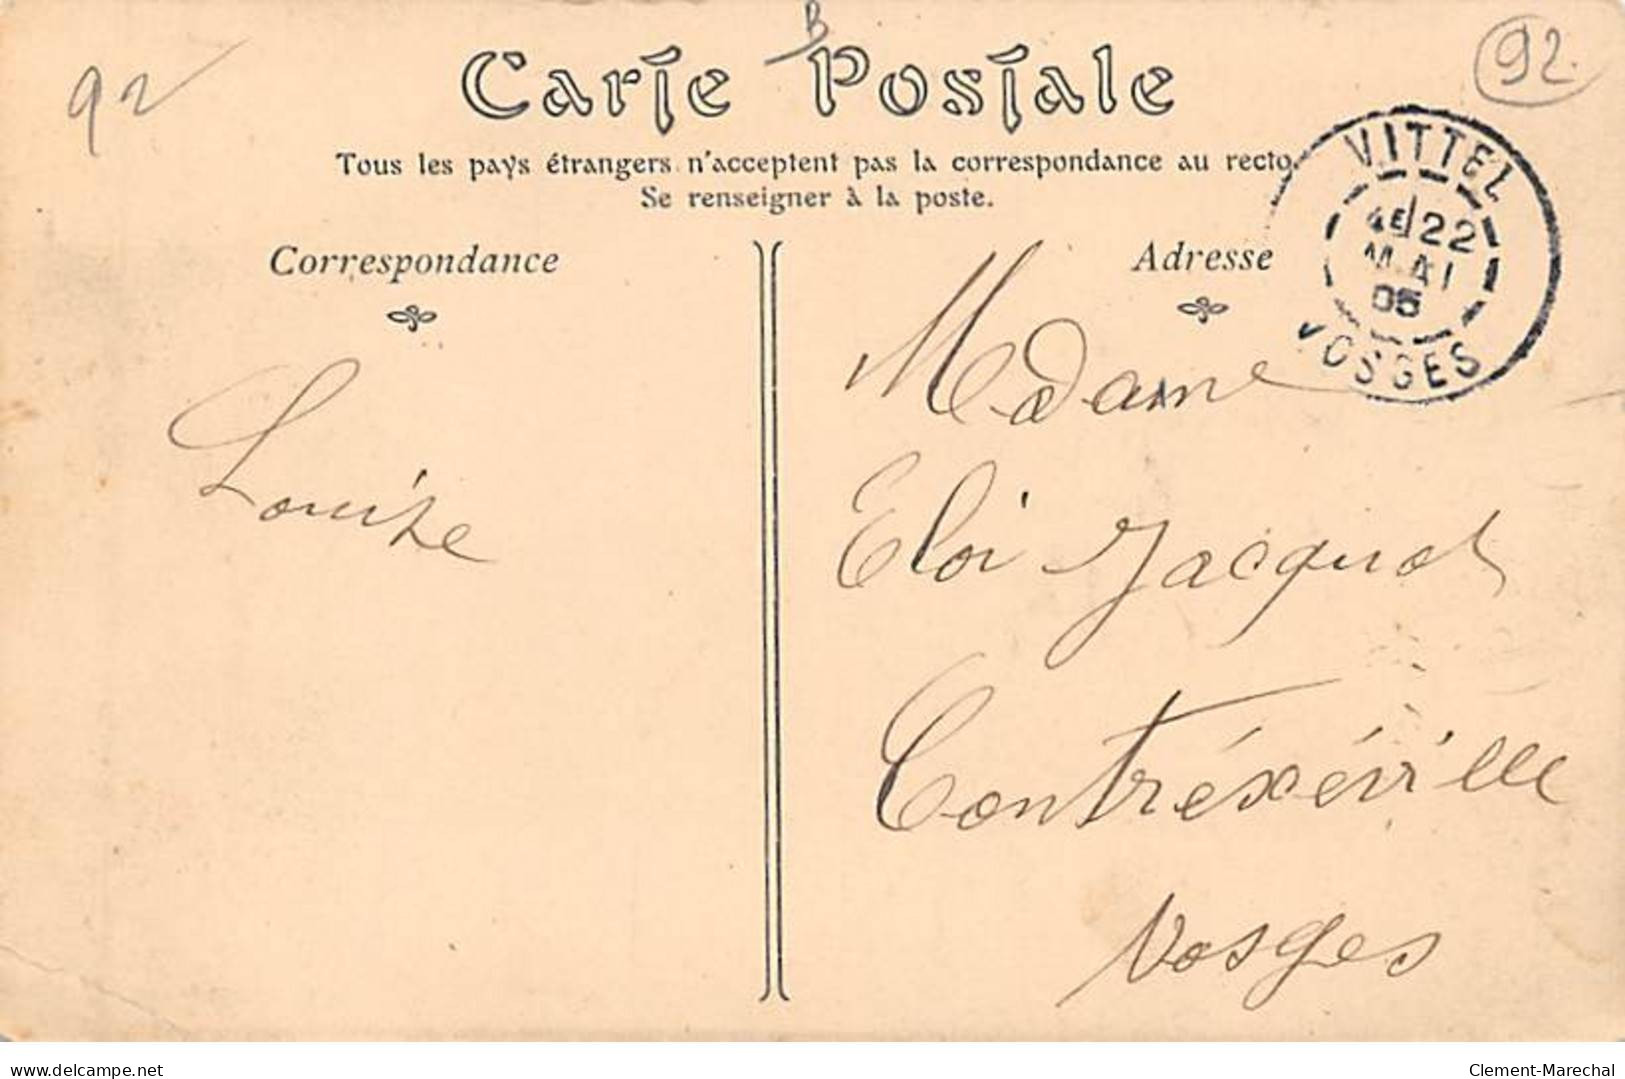 92
B
92.
Carte Postale
Tous les pays étrangers n'acceptent pas la correspondance au recto.
Se renseigner à la poste.
VITTEL
4E 22
MAI
05
VOSGES
Correspondance
Adresse
Louise
Madame
Eloi Jacquot
Contréxéville
Vosges
www.delcampe.net
Clement-Marechal